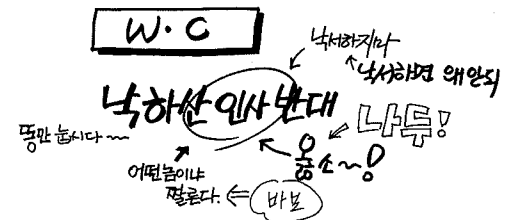 W.C
낙서하지마
낙서하면 왜 안되
낙하산 인사 반대
나두!
똥만 눕시다~~
옳소~!
어떤놈이냐
짤른다.
바보